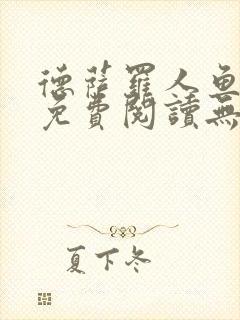 德薩羅人魚
免費閱讀無
夏下冬